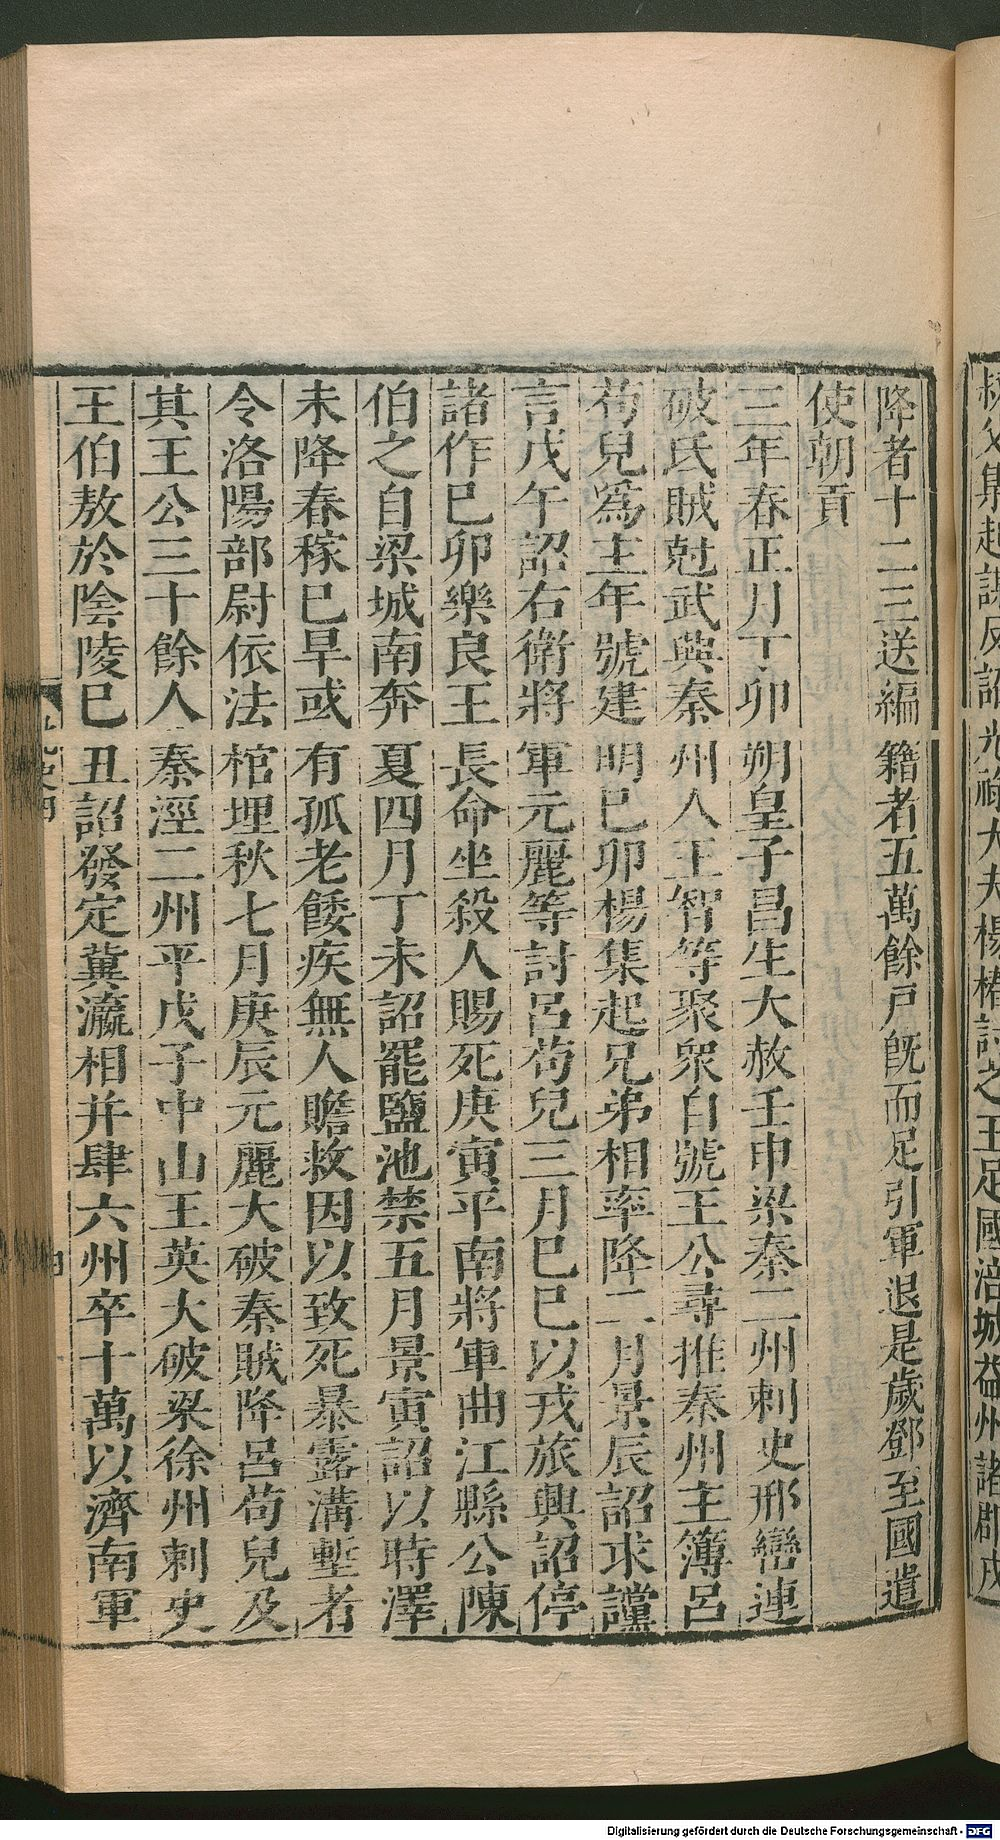 降者十二三送編籍者五萬餘戶旣而足引軍退是歲鄧至國遣
使朝貢
三年春正月丁卯朔皇子昌生大赦壬申梁秦二州刺史邢巒連
破氐賊尅武興秦州人王智等聚衆自號王公尋推秦州主簿呂
苟兒爲主年號建明巳卯楊集起兄弟相率降二月景辰詔求讜
言戊午詔右衛將軍元麗等討呂苟兒三月巳巳以戎旅興詔停
諸作巳卯樂良王長命坐殺人賜死庚寅平南將軍曲江縣公陳
伯之自梁城南奔夏四月丁未詔罷鹽池禁五月景寅詔以時澤
未降春稼巳旱或有孤老餧疾無人贍救因以致死暴露溝塹者
令洛陽部尉依法棺埋秋七月庚辰元麗大破秦賊降呂苟兒及
其王公三十餘人秦涇二州平戊子中山王英大破梁徐州刺史
王伯敖於陰陵巳丑詔發定冀瀛相并肆六州卒十萬以濟南軍
Digitalisierung gefördert durch die Deutsche Forschungsgemeinschaft - DFG